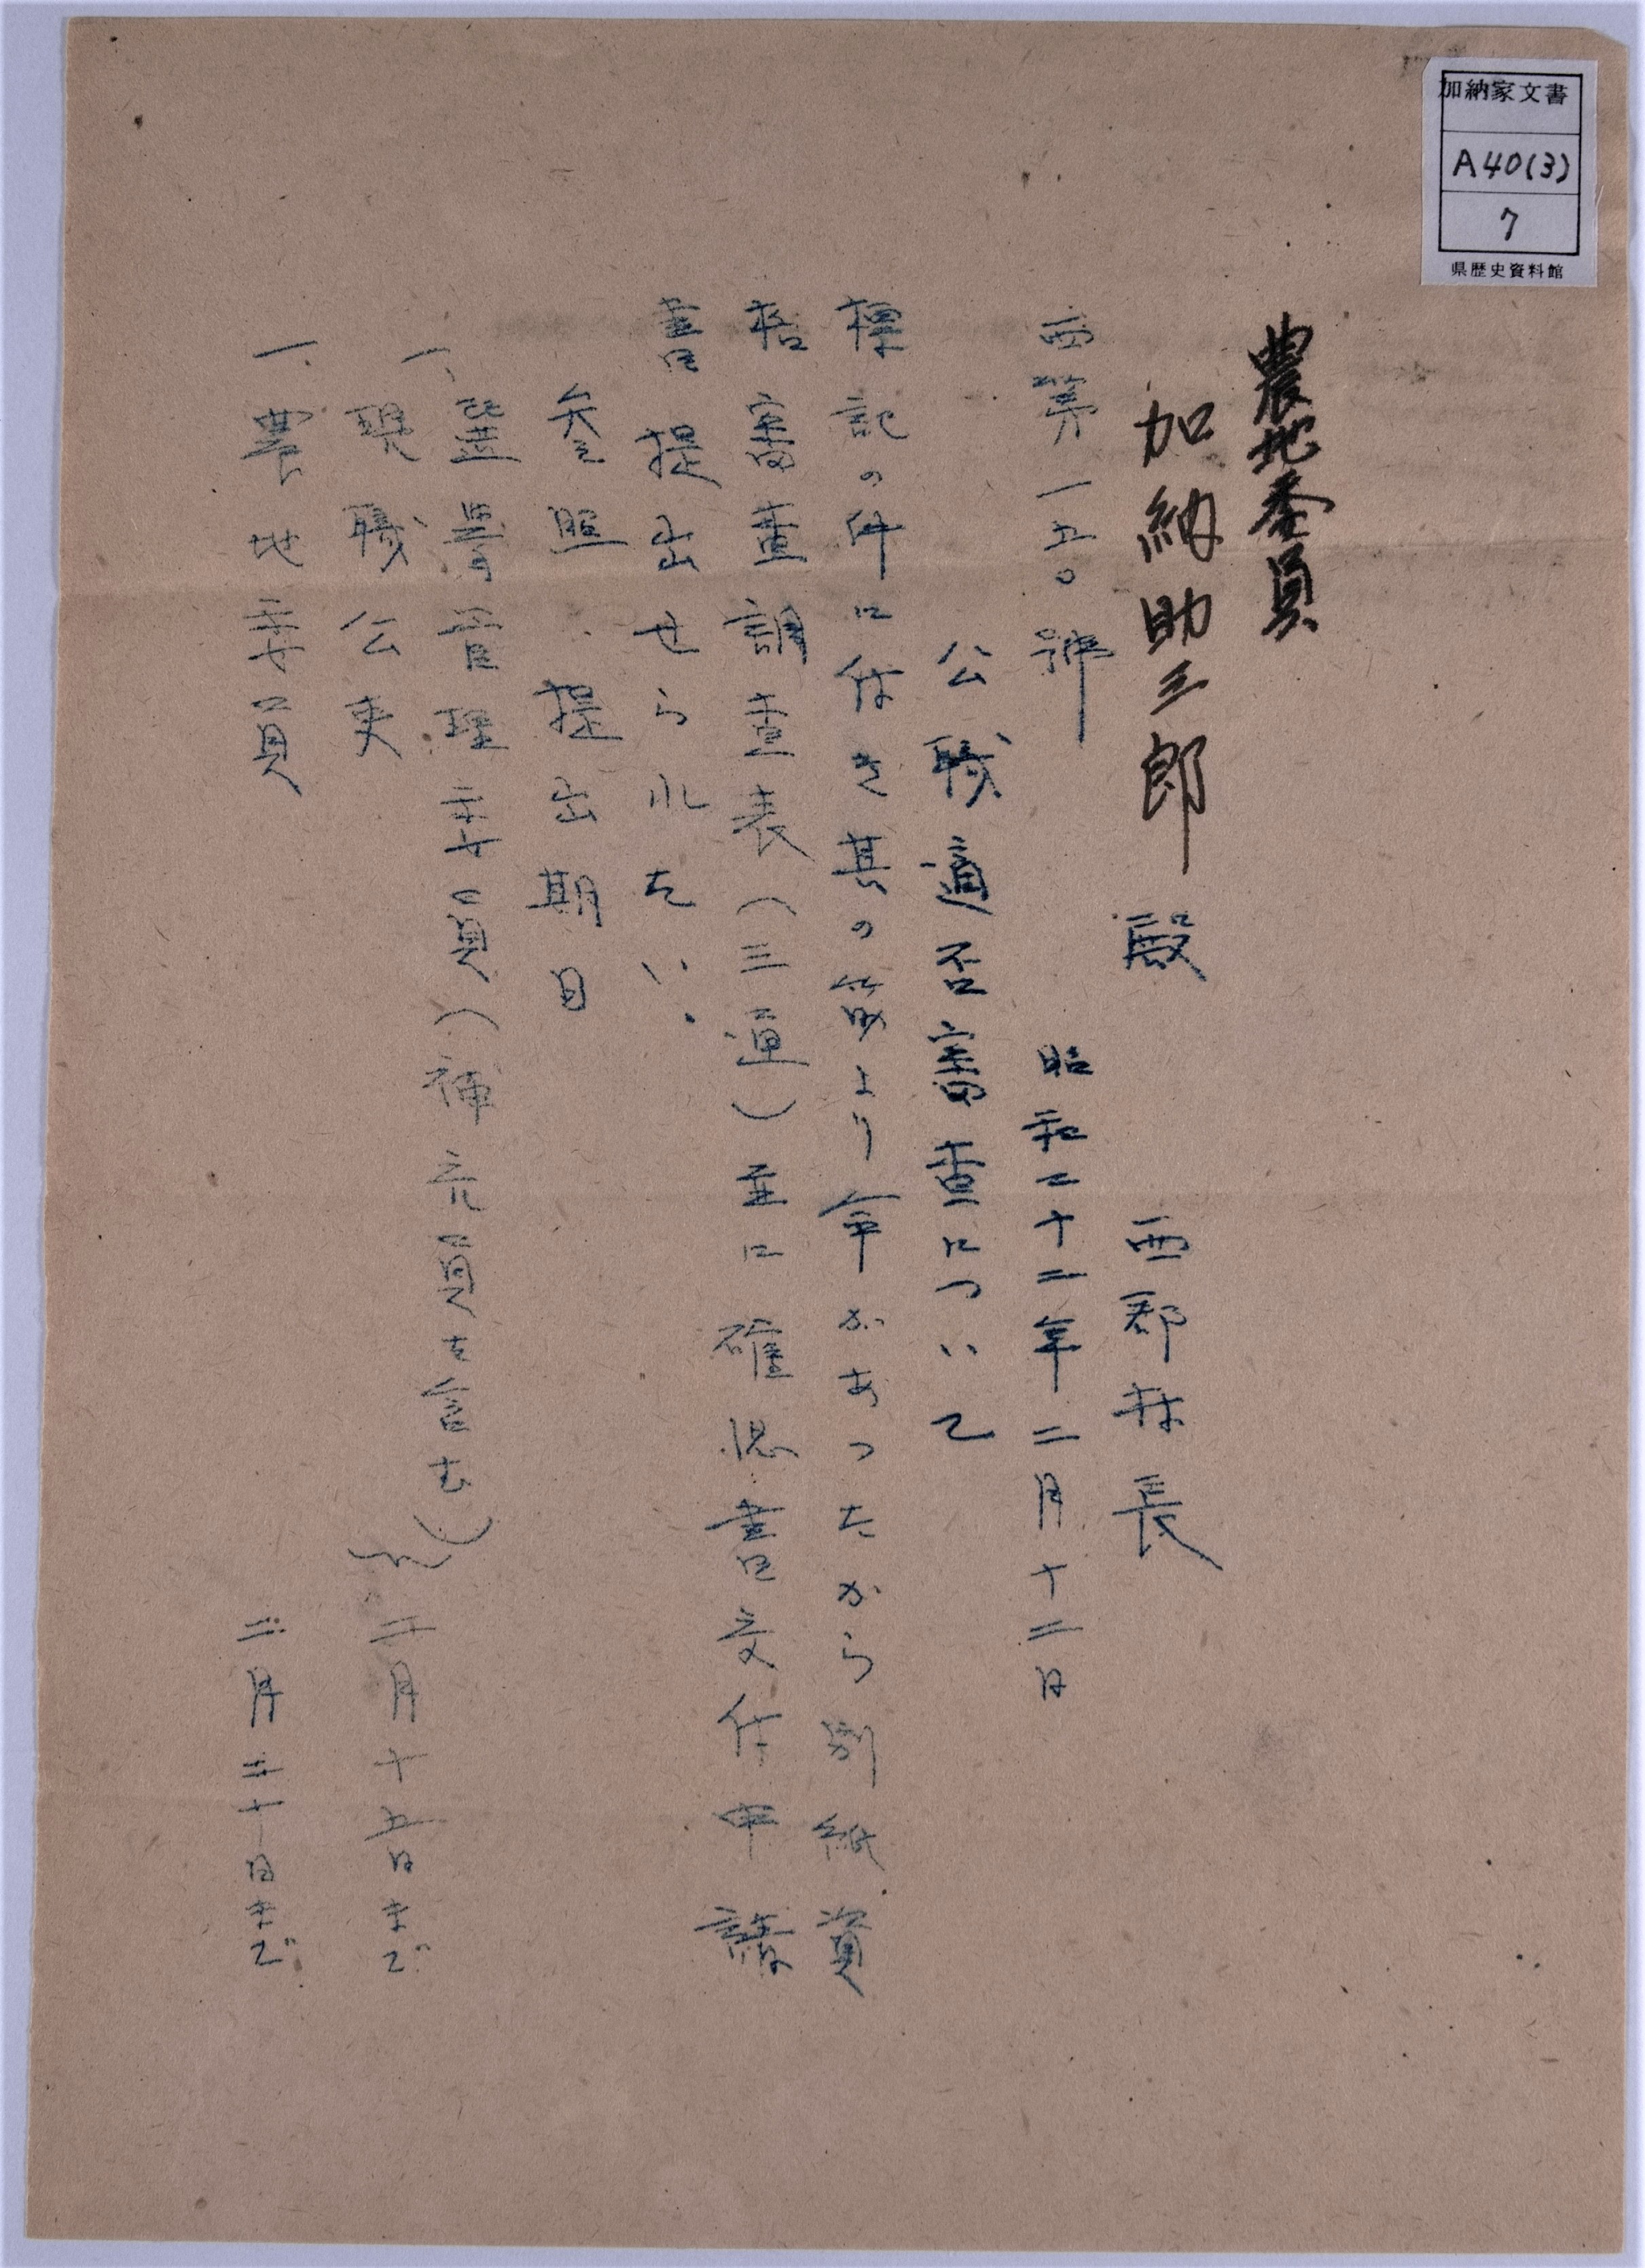 加納家文書
A40(3)
7
県歴史資料館
農地委員
加納助三郎 殿 西郡村長
西第一五〇號 昭和二十二年二月十二日
公職適否審査について
標記の件に付き其の筋より命があったから別紙資
格審査調査表(三通)並に確認書交付申請
書提出せられたい.
参照 提出期日
一、選挙管理委員(補充員を含む)
現職公吏 二月十五日まで
一、農地委員 二月二十日まで